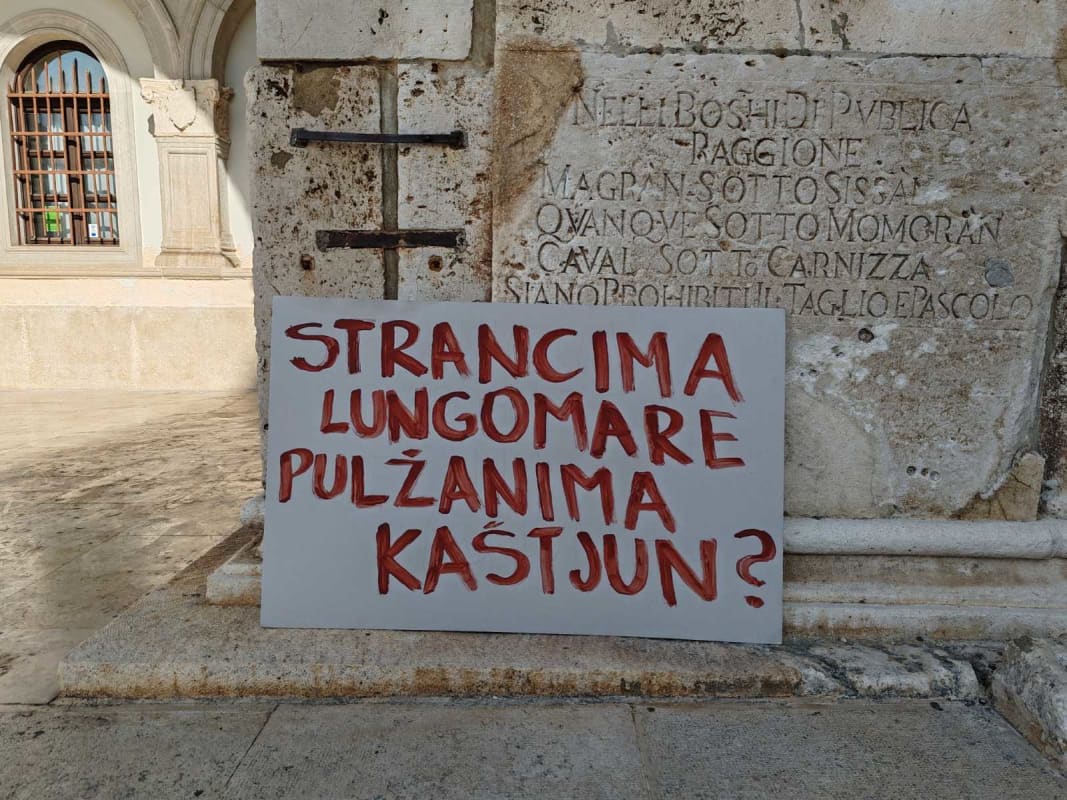 NELLI BOSHI DI PVBLICA
RAGGIONE
MAGRAN SOTTO SISSAN
QVANQVE SOTTO MOMORAN
CAVAL SOTTO CARNIZZA
SIANO PROHIBITI IL TAGLIO E PASCOLO
STRANCIMA
LUNGOMARE
PULŽANIMA
KAŠTJUN?